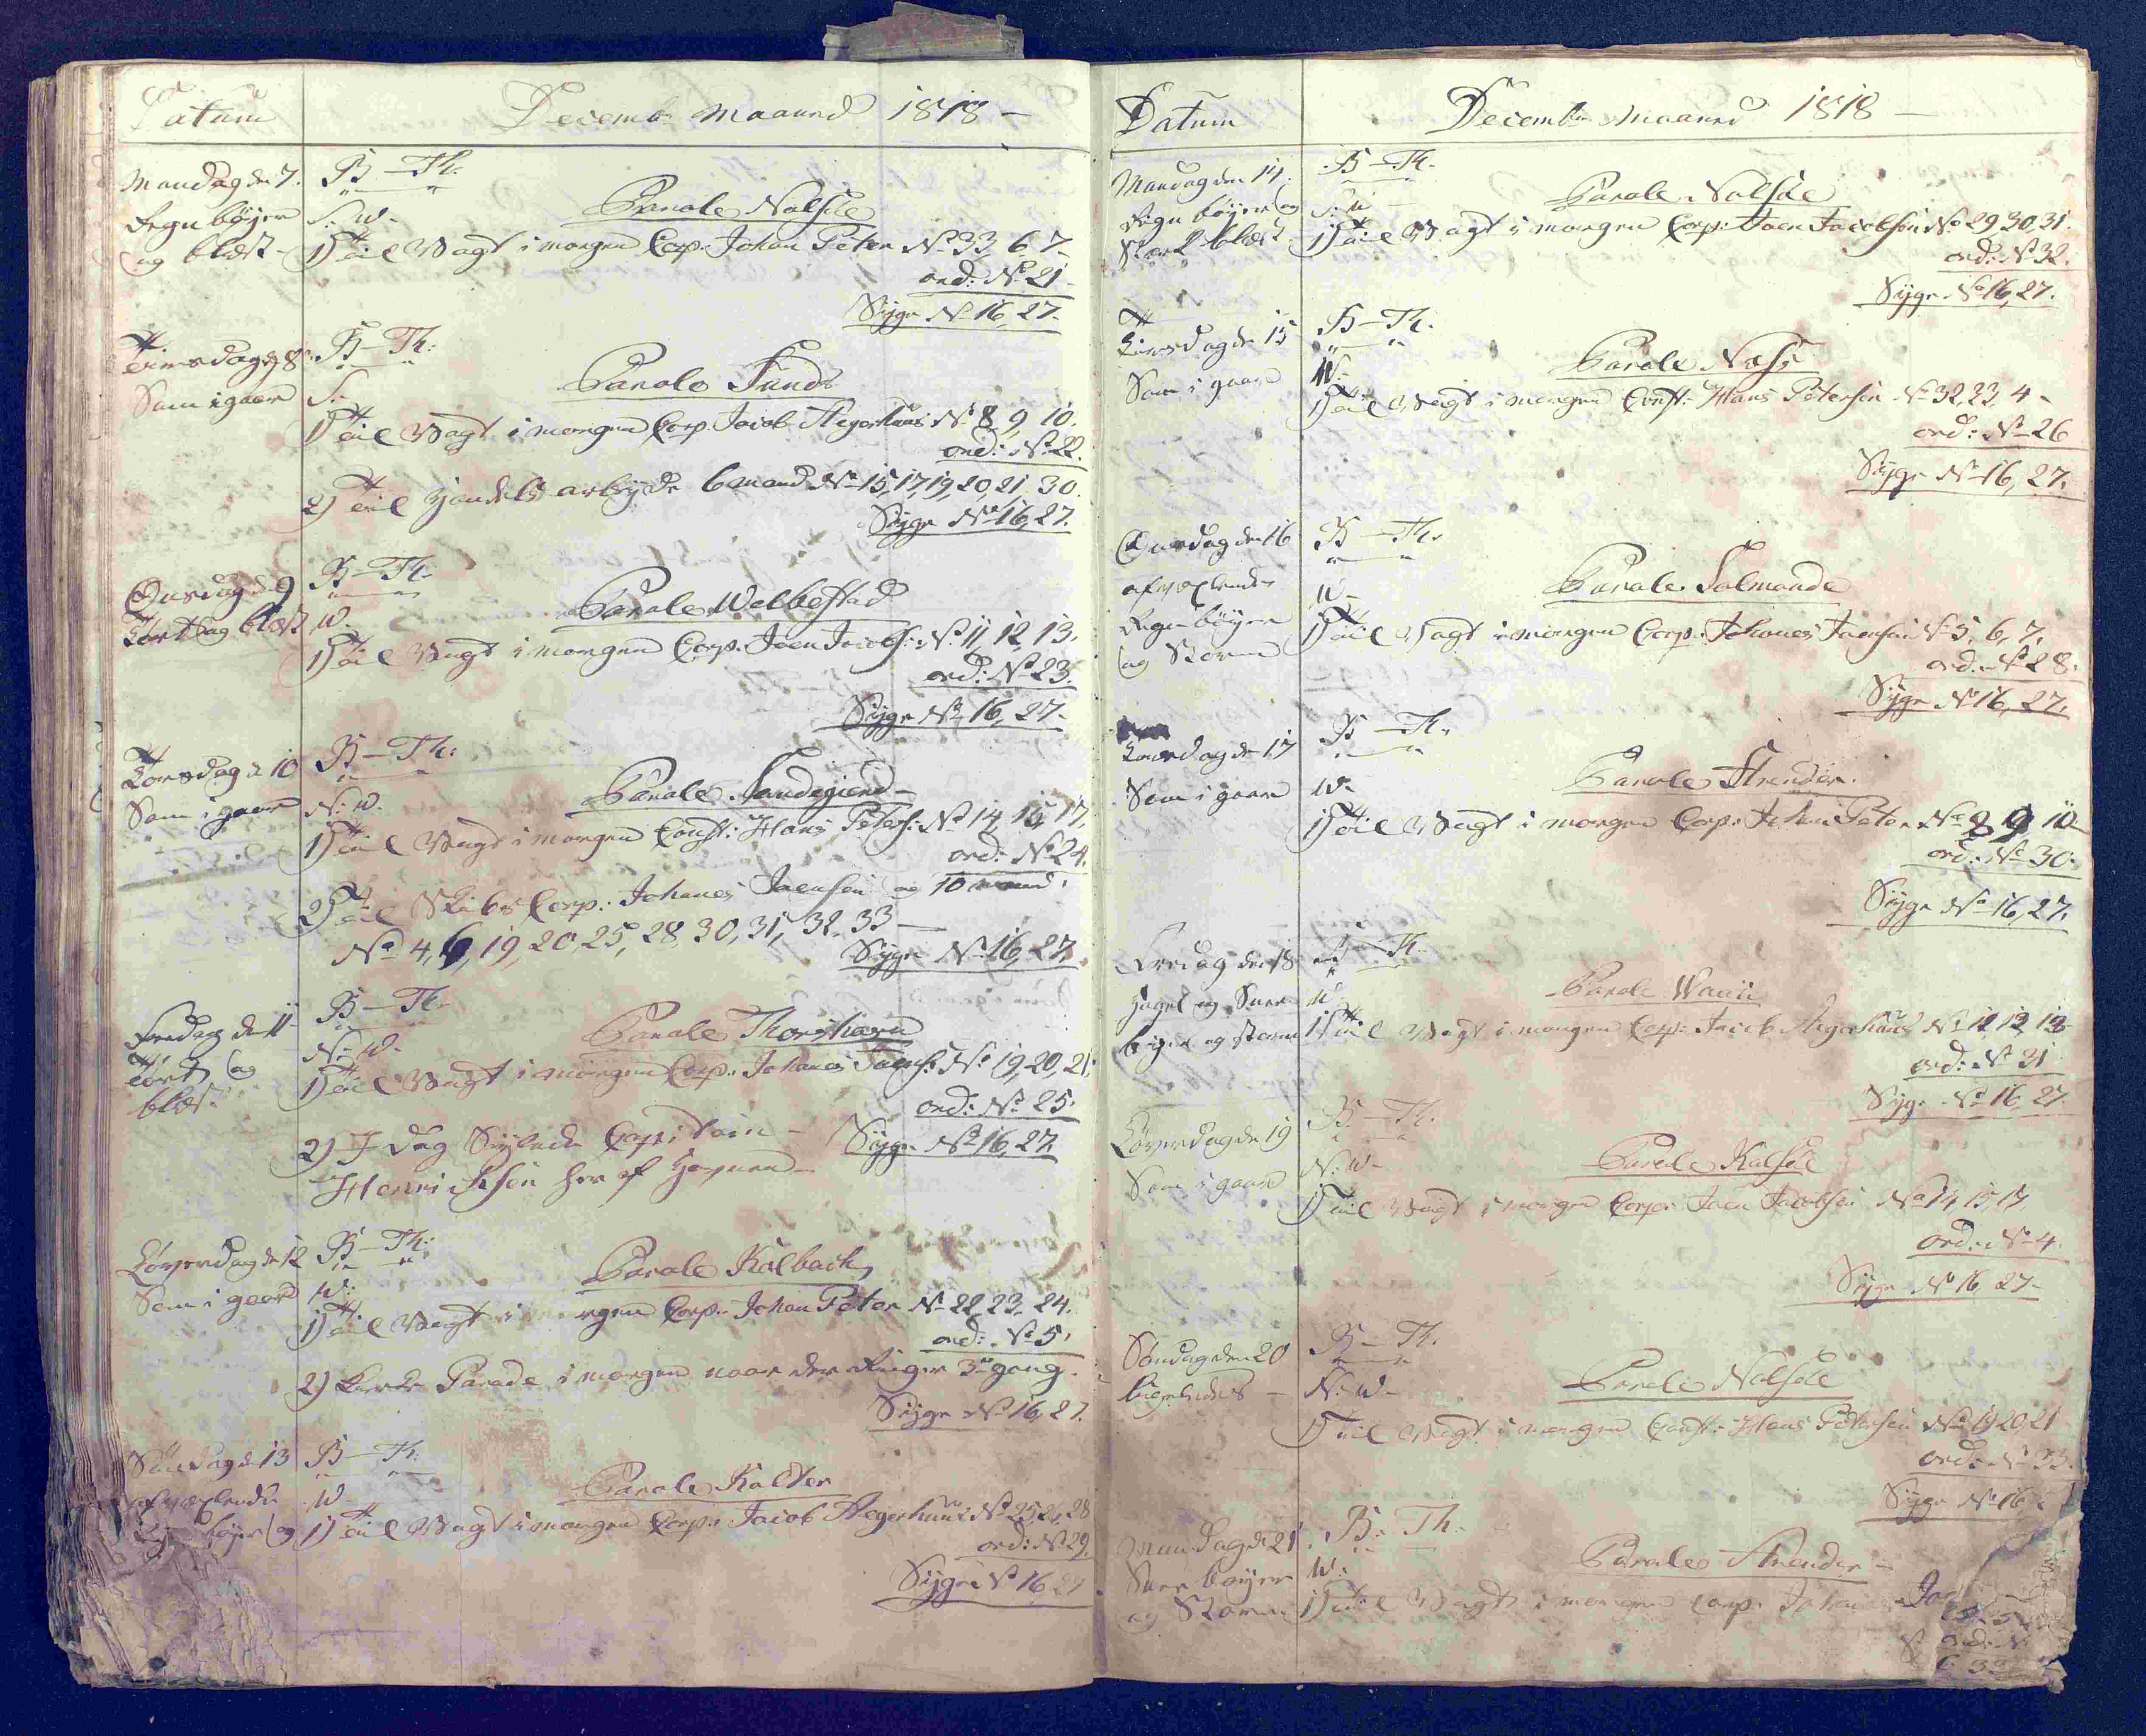 Datum
Decembr Maaned 1818 -
Mandag den 7.
B - Th.
Regnbøyer
S. W.
Parole Nolsøe
og blæst -
1) Til Vagt i morgen Corp: Johan Peter No 33, 6, 7.
ord: No 21.
Syge No 16, 27.
Tirsdag d 8
B - Th:
Parole Sund
Som i gaar
S.
1) Til Vagt i morgen Corp. Jacob Hegerhuus No 8, 9, 10.
ord: No 22.
2) Til Handels arbejde 6 mand No 15, 17, 19, 20, 21, 30.
Syge No 16, 27.
Onsdag d 9
B - Th:
Parole Welbestad
Tørt og blæst
W.
1) Til Vagt i morgen Corp. Joen Jacobs: No 11, 12, 13.
ord: No 23.
Syge No 16, 27.
Torsdag d 10
B - Th:
Parole Sandegierd
Som i gaar
N. W.
1) Til Vagt i morgen Const: Hans Peters: No 14, 15, 17,
ord: No 24.
2) Til Skibs Corp: Johanes Joensen og 10 mand.
No 4, 6, 19, 20, 25, 28, 30, 31, 32, 33 -
Syge No 16, 27.
Fredag den 11
B - Th.
Parole Thorshavn
Tørt og
N. W.
1) Til Vagt i morgen Corp: Johanes Joens: No 19, 20, 21,
blæst.
ord: No 25.
2) I Dag Seylede Capitain -
Syge No 16, 27.
Henrichsen her af Havnen -
Løverdag de 12
B - Th:
Parole Kalbach
Som i gaar
W:
1) Til Vagt i morgen Corp: Johan Peter No 22, 23, 24.
ord: No 5.
2) Kirke Parade i morgen naar der Ringer 3de gang.
Syge No 16, 27.
Søndag de 13
B - Th:
Parole Kolter
afvexlende
W
1) Til Vagt i morgen Corp: Jacob Hegerhuus No 25, 28
bøyer og
ord: No 29.
Syge No 16, 27
Datum
Decembr Maaned 1818 -
Mandag den 14.
B - Th.
Parole Nolsøe
Regn bøyer og
S. W
Stærk blæst
1) Til Vagt i morgen Corp: Joen Jacobsen No 29, 30, 31.
ord: No 32.
Syge No 16, 27.
Tirsdag de 15
B - Th.
Parole Næss
Som i gaar
W:
1) Til Vagt i morgen Const: Hans Petersen No 32, 33, 4 -
ord: No 26
Syge No 16, 27.
Onsdag den 16
B - Th.
Parole Salmande
afvexlende
W -
Regn bøyer
1) Til Vagt i morgen Corp: Johanes Joensen No 5, 6, 7.
og Storm
ord: No 28.
Syge No 16, 27.
Torsdag de 17
B - Th.
Parole Strender.
Som i gaar
W.
1) Til Vagt i morgen Corp: Johan Peter No 8 9 10
ord: No 30.
Syge No 16, 27.
Fredag den 18
B - Th
Parole Waaii
Hagel og Snee
W
bøyer og storm
1) Til Vagt i morgen Corp: Jacob Hegerhuus No 11, 12, 13
ord: No 31
Syge No 16, 27.
Løverdag de 19
B - Th.
Parole Kalsøe
Som i gaar
N. W
1) Til Vagt i morgen Corp: Joen Jacobsen No 14, 15, 17,
ord: No 4.
Syge No 16, 27
Søndag den 20
B - Th.
Parole Nolsøe
ligeledes -
N: W -
1) Til Vagt i morgen Const: Hans Petersen No 19 20 21
ord: No 33.
Syge No 16,
Mandag de 21
B: Th.
Parole Strender -
Snee bøyer
W:
og Storm
1) Til Vagt i morgen Corp: Johan Joe
ord: No